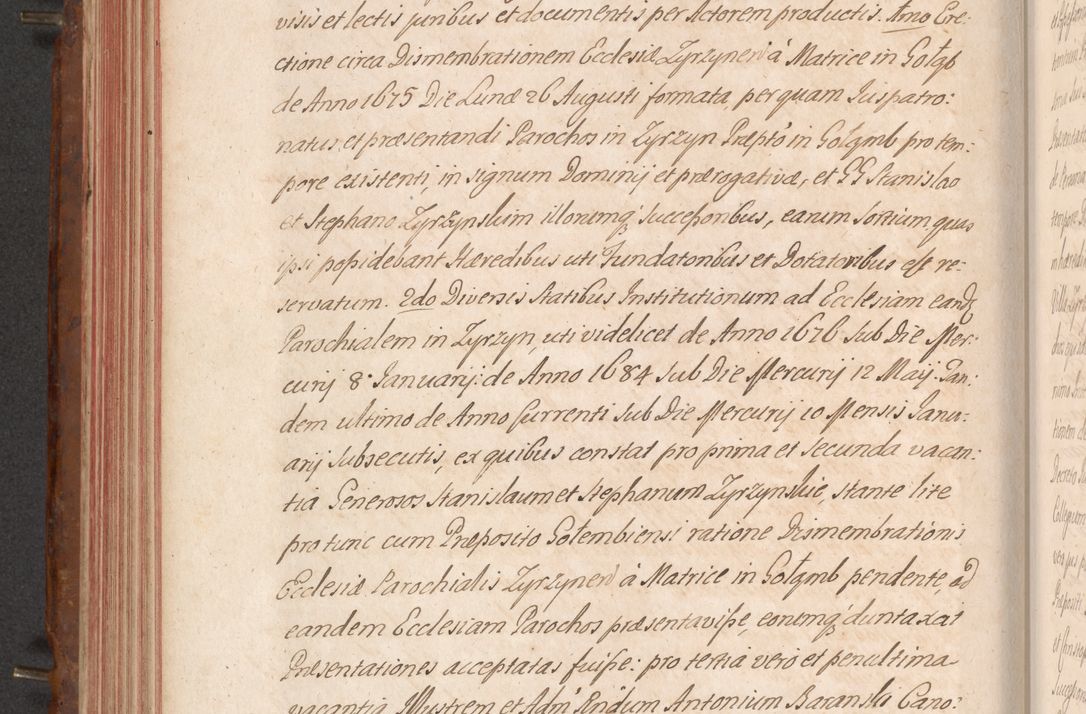 visis et lectis juribus et documentis per Actorem productis. Imo Ere-
ctione circa Dismembrationem Ecclesiæ Zyrzynen à Matrice in Gołąb
de Anno 1675 Die Lunæ 26 Augusti formata, per quam Juspatro:
natus, et præsentandi Parochos in Zyrzyn Præpto in Gołąmb pro tem-
pore existenti, in signum Dominij et prærogativæ, et GG Stanislao
et Stephano Zyrzynskim illorumq succeßoribus, earum Sortium quas
ipsi poßidebant Hæredibus uti Fundatoribus et Dotatoribus eße re-
servatum. 2do Diversis Statibus Institutionum ad Ecclesiam eand
Parochialem in Zyrzyn, uti videlicet de Anno 1676 Sub Die Mer-
curij 8 Januarij: de Anno 1684 Sub Die Mercurij 12 Maij. Tan:
dem ultimo de Anno Currenti Sub Die Mercurij 10 Mensis Janu-
arij Subsecutis, ex quibus constat pro prima et Secunda vacan-
tia Generosos Stanislaum et Stephanum Zyrzynskie, Stante lite
pro tunc cum Præposito Gołembiensi ratione Dismembrationis
Ecclesiæ Parochialis Zyrzynen à Matrice in Gołąmb pendente, ad
eandem Ecclesiam Parochos præsentaviße, eorumq duntaxat
Præsentationes acceptatas fuiße: pro tertia vero et penultima
vacantia Illustrem et Adm Rndum Antonium Baranski Cano: